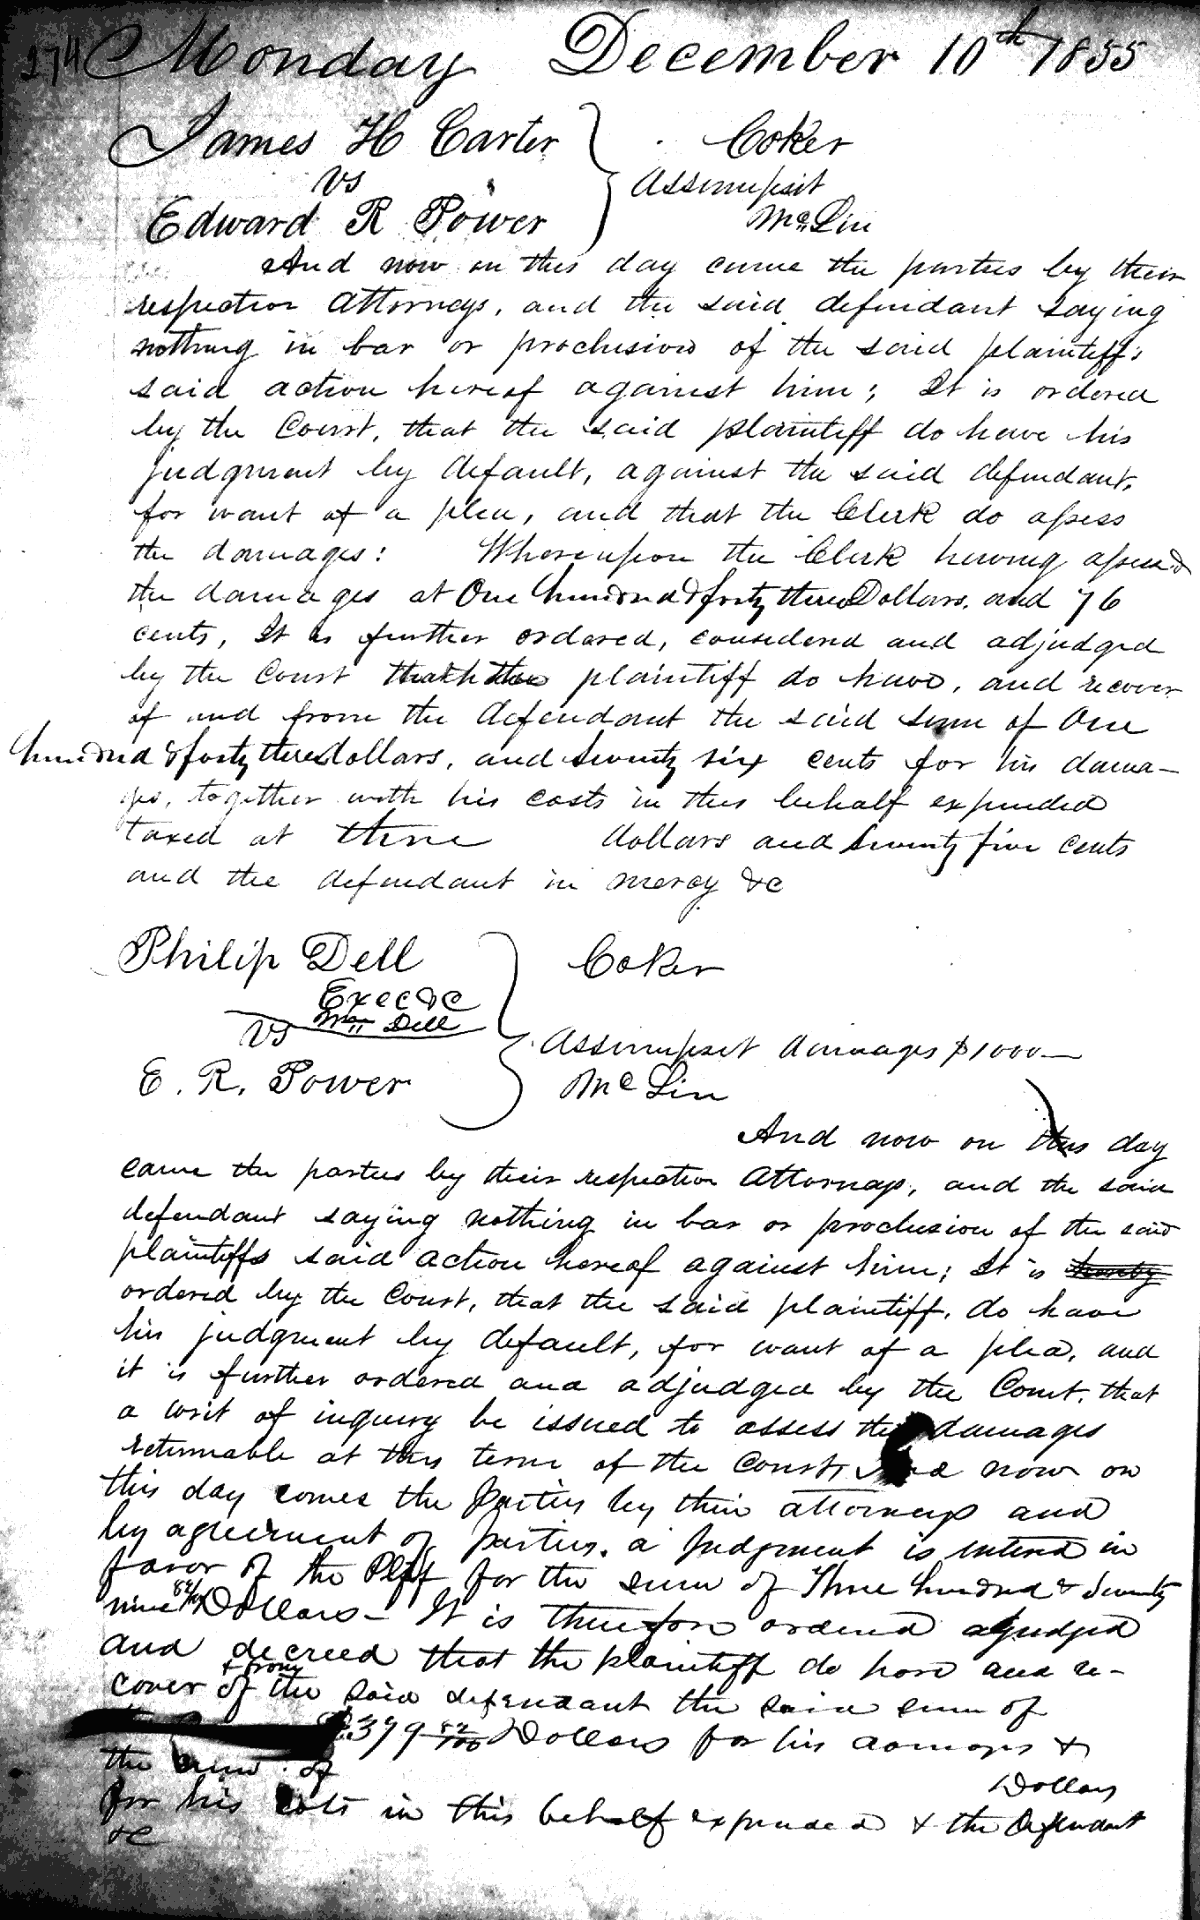 274 Monday December 10th 1855
James H Carter Coker
vs Assumpsit
Edward R Power McLin
And now on this day came the parties by their
respective Attorneys, and the said defendant saying
nothing in bar or proclusion of the said plaintiffs
said action hereof against him; It is ordered
by the Court, that the said plaintiff do have his
judgment by default, against the said defendant,
for want of a plea, and that the Clerk do assess
the damages: Whereupon the Clerk having assessed
the damages at One hundred & forty three Dollars, and 76
cents, It is further ordered, considered and adjudged
by the Court that the plaintiff do have, and recover
of and from the defendant the said sum of One
hundred & forty three dollars, and seventy six cents for his dama-
ges, together with his costs in this behalf expended
taxed at three dollars and seventy five cents
and the defendant in mercy &c
Philip Dell Coker
Exec &c
Wm Dell
vs Assumpsit damages $1000—
E. R. Power McLin
And now on this day
came the parties by their respective Attorneys, and the said
defendant saying nothing in bar or proclusion of the said
plaintiffs said action hereof against him; It is hereby
ordered by the Court, that the said plaintiff, do have
his judgment by default, for want of a plea, and
it is further ordered and adjudged by the Court, that
a writ of inquiry be issued to assess the damages
returnable at this term of the Court, And now on
this day comes the Parties by their attorneys and
by agreement of parties, a judgment is entered in
favor of the Plff for the sum of Three hundred & Seventy
nine 82/100 Dollars— It is therefore ordered adjudged
and decreed that the plaintiff do have and re-
cover of & from the said defendant the said sum of
$379 82/100 Dollars for his damages &
the sum of Dollars
for his costs in this behalf expended & the Defendant
&c